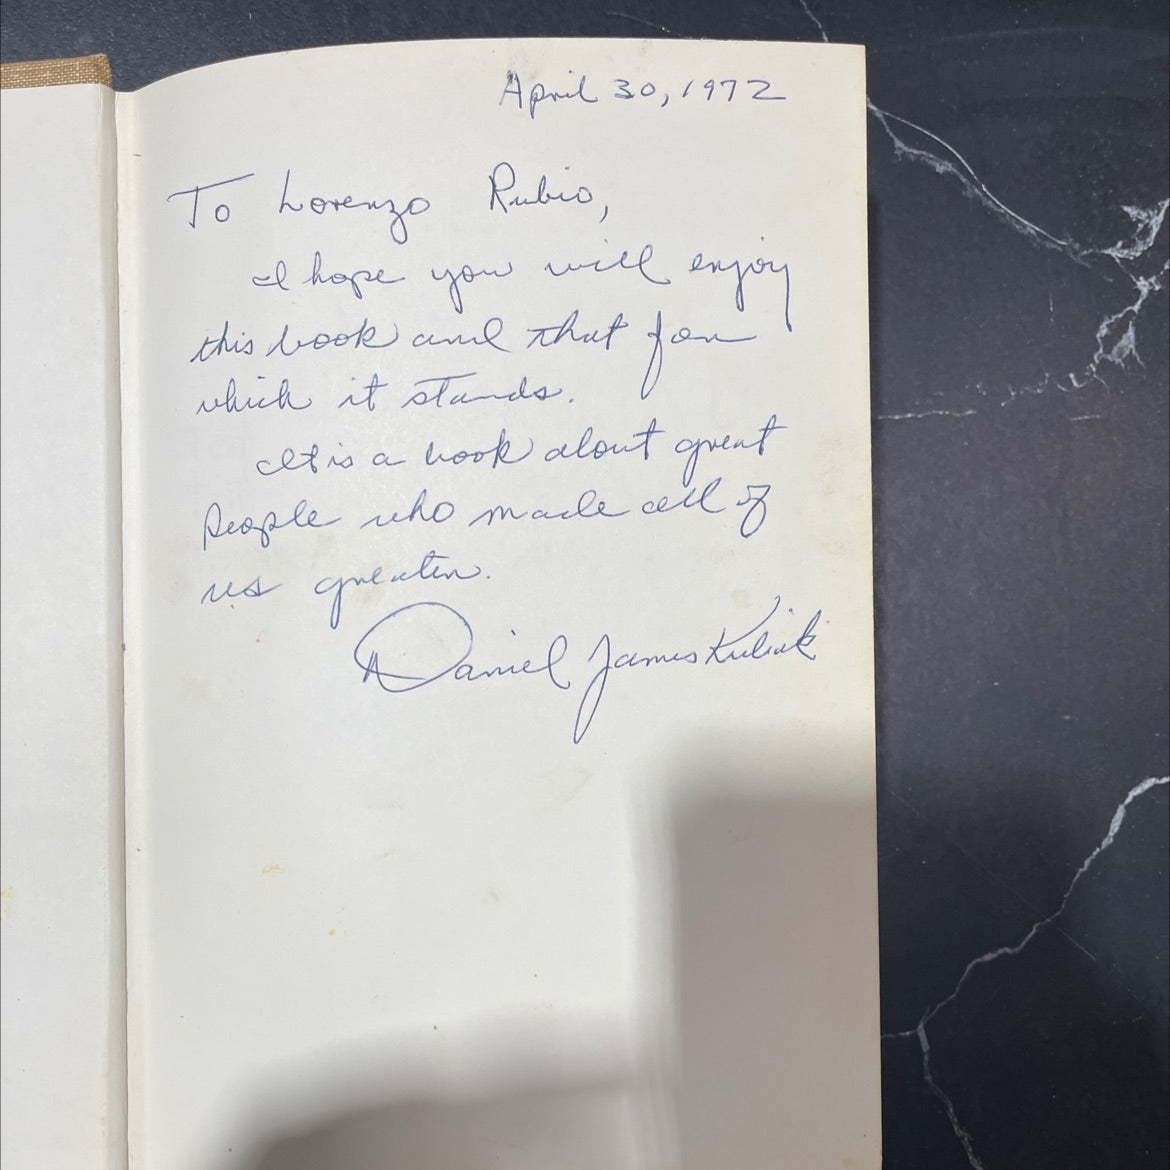 April 30, 1972
To Lorenzo Rubio,
I hope you will enjoy
this book and that for
which it stands.
It is a book about great
people who made all of
us greater.
Daniel James Kubiak